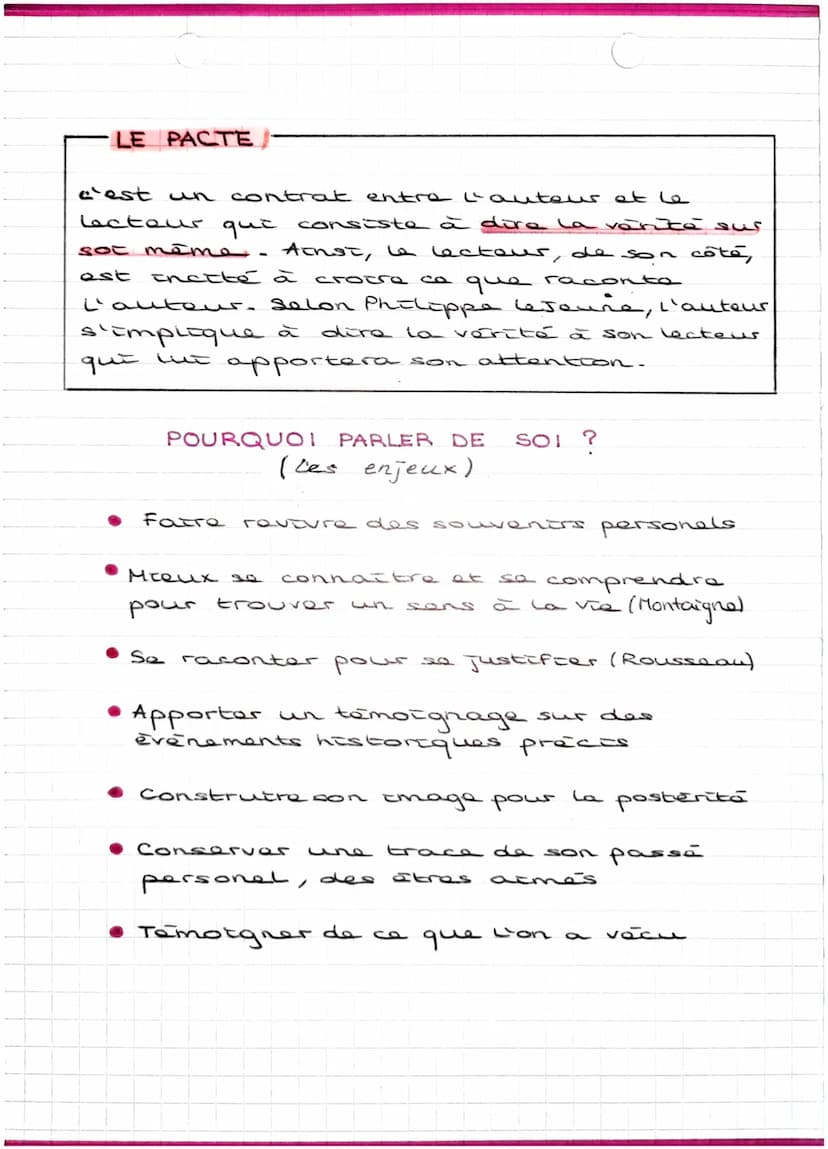 LE PACTE
c'est un contrat entre l'auteur et le
lecteur qui consiste à dire la vérité sur
soi même. Ainsi, le lecteur, de son côté,
est incité à croire ce que raconte
l'auteur. Selon Philippe Lejeune, l'auteur
s'implique à dire la vérité à son lecteur
qui lui apportera son attention.
POURQUOI PARLER DE SOI ?
(Les enjeux)
• Faire revivre des souvenirs personels
• Mieux se connaître et se comprendre
pour trouver un sens à la vie (Montaigne)
• Se raconter pour se justifier (Rousseau)
• Apporter un témoignage sur des
événements historiques précis
• Construire son image pour la postérité
• Conserver une trace de son passé
personel, des êtres aimés
• Témoigner de ce que l'on a vécu